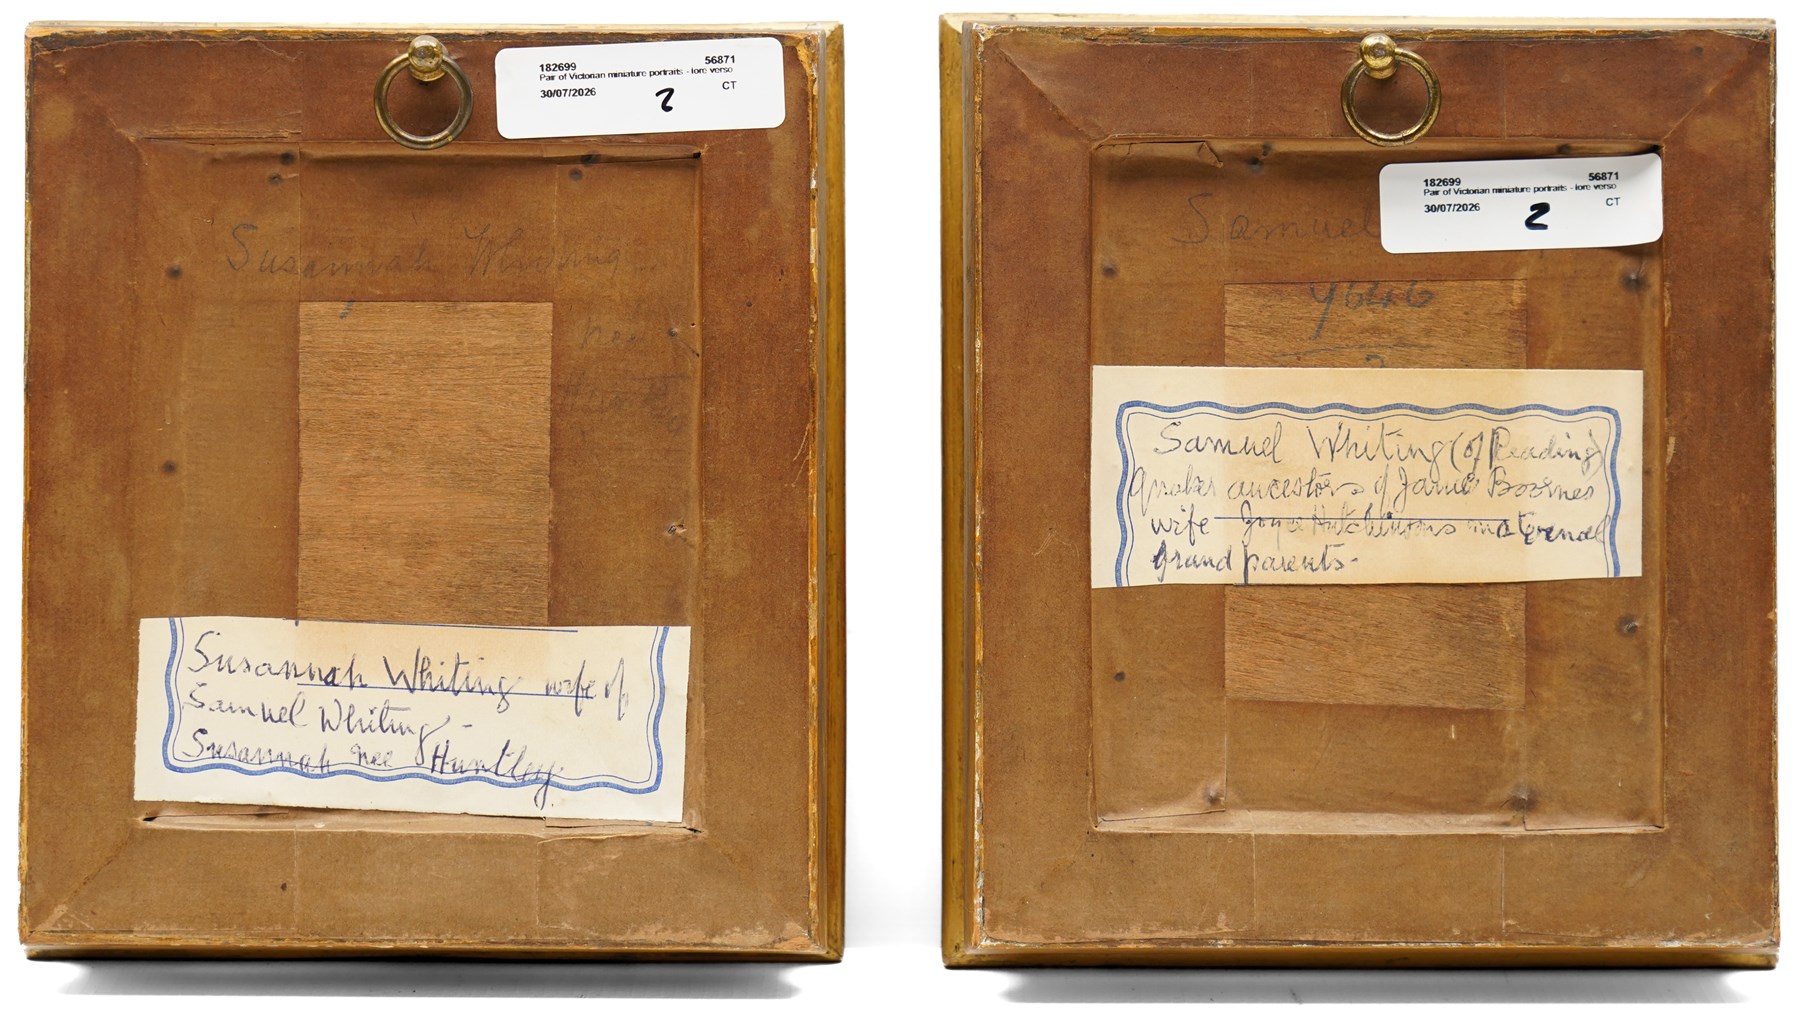 182699 56871
Pair of Victorian miniature portraits - lore verso
30/07/2026 2 CT
Susannah Whiting
nee
Susannah Whiting wife of
Samuel Whiting -
Susannah nee Huntley.
182699 56871
Pair of Victorian miniature portraits - lore verso
30/07/2026 2 CT
Samuel
Samuel Whiting (of Reading)
Quaker ancestors of James Boornes
wife Joyce Hutchinsons maternal
grand parents-